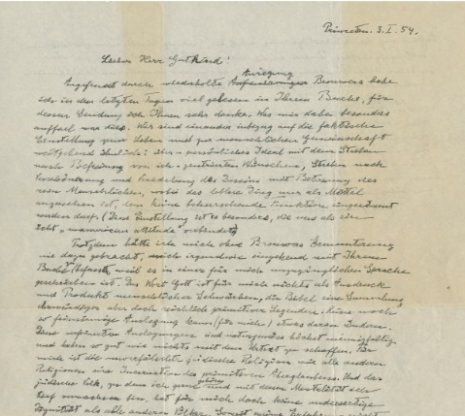 Princeton. 3. I. 54.
Lieber Herr Gutkind!
Angefeuert durch wiederholte Anregung Brouwers habe
ich in den letzten Tagen viel gelesen in Ihrem Buche, für
dessen Sendung ich Ihnen sehr danke. Was mir dabei besonders
auffiel war dies. Wir sind einander inbezug auf die faktische
Einstellung zum Leben und zur menschlichen Gemeinschaft
weitgehend ähnlich: über-persönliches Ideal mit dem Streben
nach Befreiung von ich-zentrierten Wünschen, Streben nach
Verschönerung und Veredelung des Daseins mit Betonung des
rein Menschlichen, wobei das leblose Ding nur als Mittel
anzusehen ist, dem keine beherrschende Funktion eingeräumt
werden darf. (Diese Einstellung ist es besonders, die uns als ein
echt "unamerican attitude" verbindet)
Trotzdem hätte ich mich ohne Brouwers Ermunterung
nie dazu gebracht, mich irgendwie eingehend mit Ihrem
Buche zu befassen, weil es in einer für mich unzugänglichen Sprache
geschrieben ist. Das Wort Gott ist für mich nichts als Ausdruck
und Produkt menschlicher Schwächen, die Bibel eine Sammlung
ehrwürdiger aber doch reichlich primitiver Legenden. Keine noch
so feinsinnige Auslegung kann (für mich) etwas daran ändern.
Diese verfeinerten Auslegungen sind naturgemäss höchst mannigfaltig
und haben so gut wie nichts mit dem Urtext zu schaffen. Für
mich ist die unverfälschte jüdische Religion wie alle anderen
Religionen eine Incarnation des primitiven Aberglaubens. Und das
jüdische Volk, zu dem ich gerne gehöre und mit dessen Mentalität ich
tief verwachsen bin, hat für mich doch keine andersartige
Dignität als alle anderen Völker. Soweit meine Erfahrung reicht